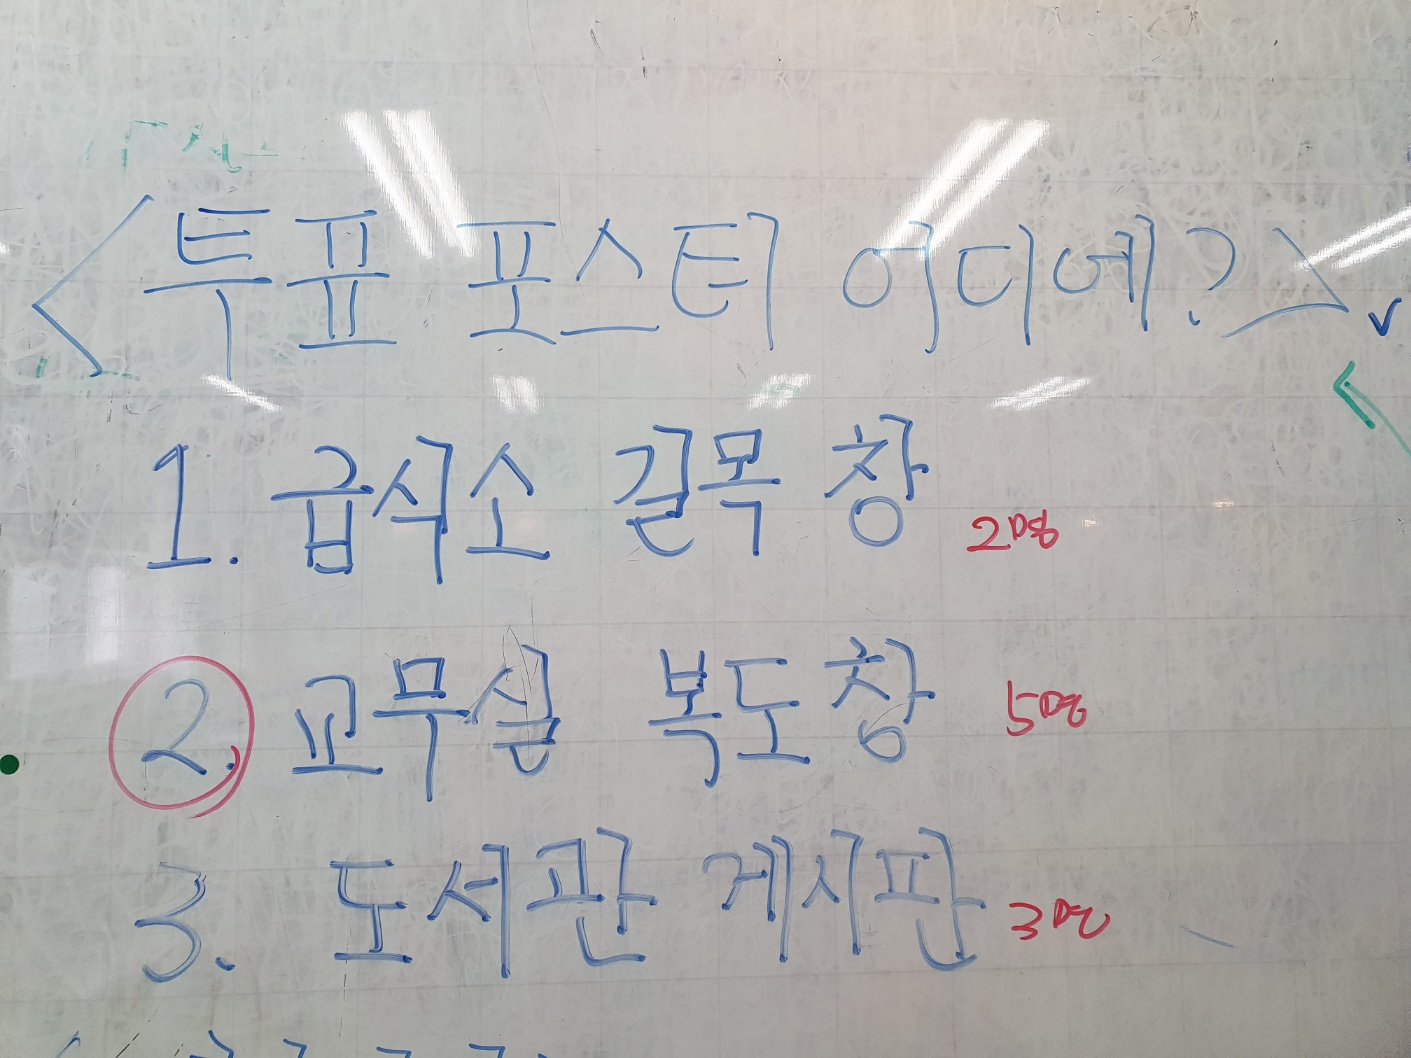 <투표 포스터 어디에?>
1. 급식소 길목 창 2명
2. 교무실 복도창 5명
3. 도서관 게시판 3명